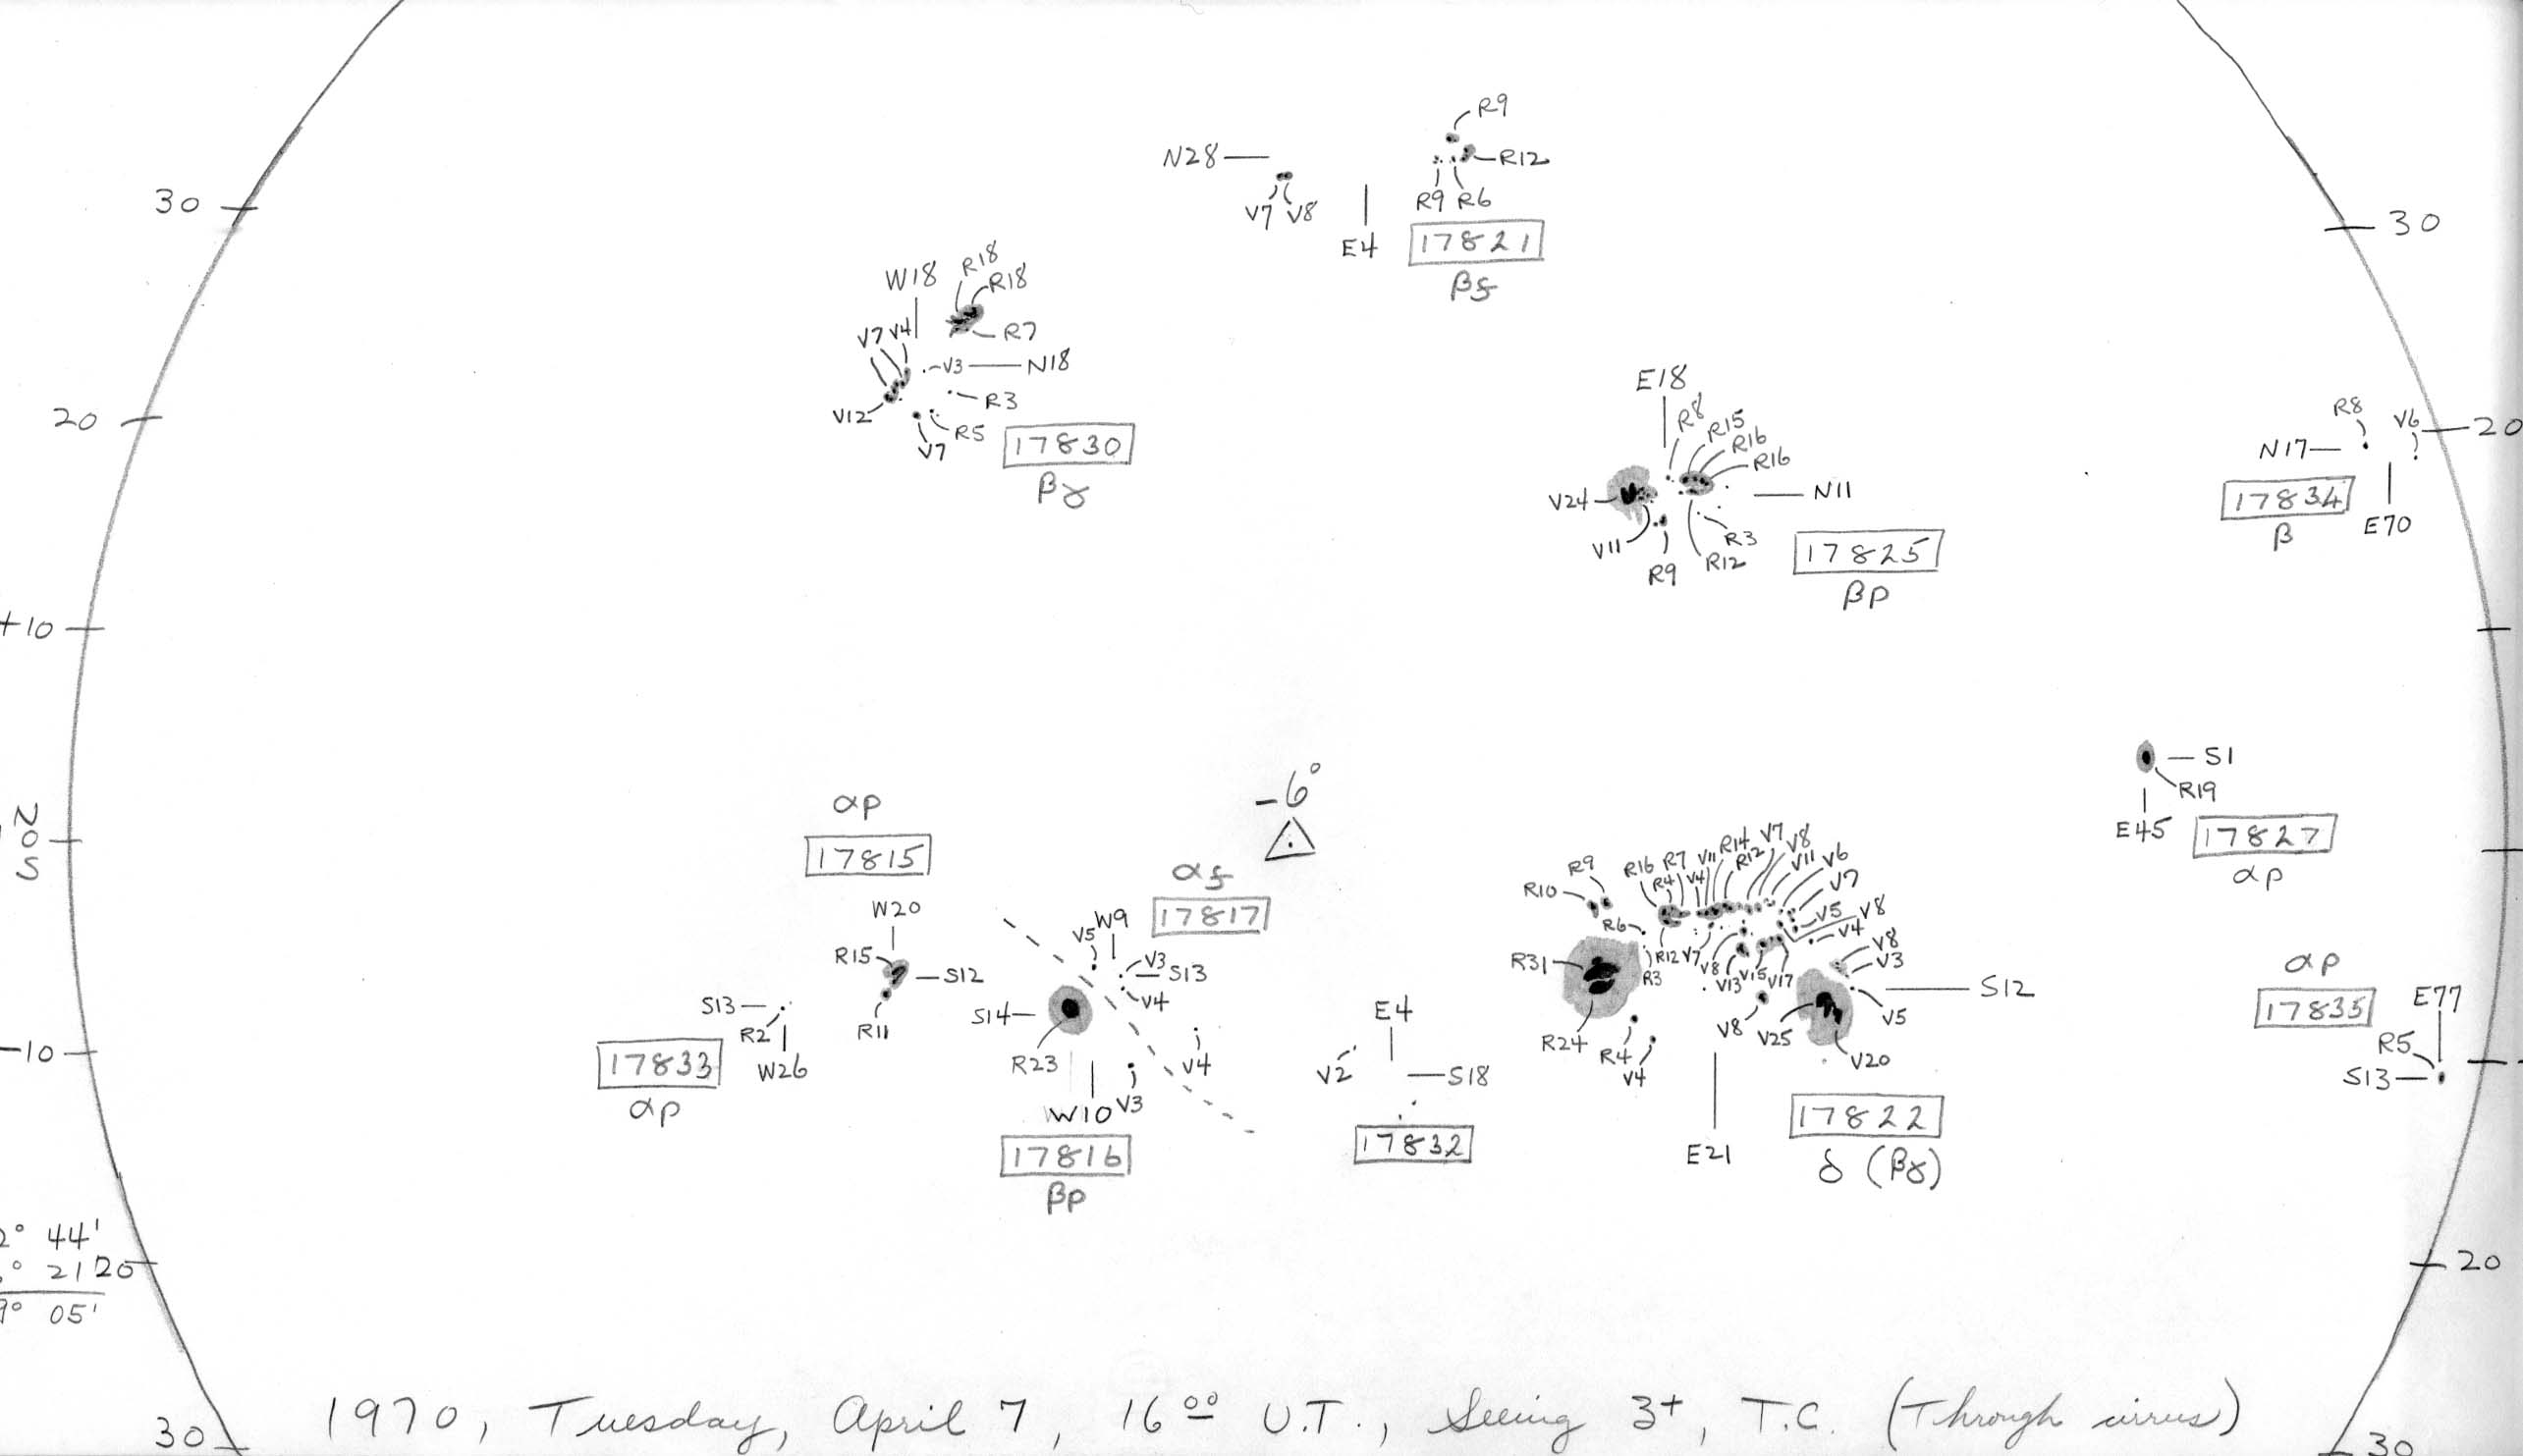 R9
N28
R12
30
V7 V8
R9 R6
30
E4
17821
βf
W18
R18
R18
R7
V7 V4
V3
N18
R3
V12
R5
V7
17830
βγ
20
E18
R8
R15
R16
R16
V24
N11
V11
R3
R12
R9
17825
βp
R8
V6
20
N17
17834
β
E70
+10
S1
R19
E45
17827
αp
N
0
S
-6°
αp
17815
W20
R15
S12
R11
S13
R2
W26
17833
αp
αf
17817
W9
V5
V3
S13
V4
S14
R23
V4
V3
W10
17816
βp
E4
V2
S18
17832
R9
R10
R16
R7
V11
R14
V7
V8
R4
V4
R12
V11
V6
V7
R6
V5
V8
V4
V8
V3
R31
R12
V7
R3
V8
V13
V15
V17
S12
V5
R24
R4
V4
V8
V25
V20
E21
17822
δ (βγ)
αp
17835
E77
R5
S13
-10
2° 44'
° 21
20
9° 05'
20
30
1970, Tuesday, April 7, 16⁰⁰ U.T., Seeing 3+, T.C. (Through cirrus)
30